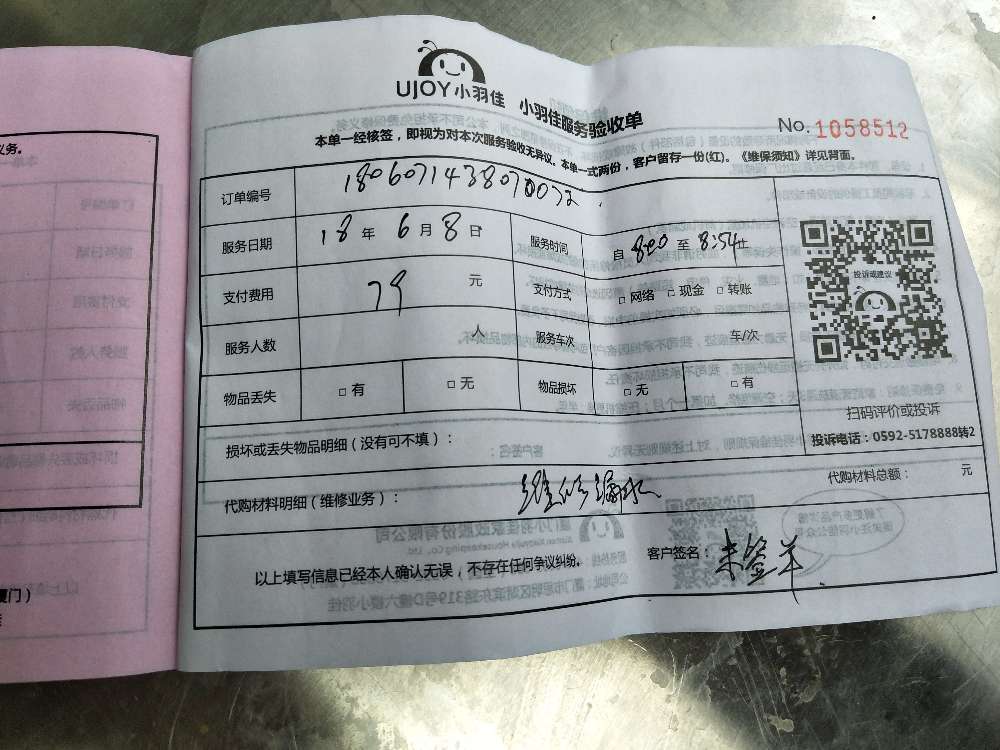 UJOY小羽佳 小羽佳服务验收单
No.1058512
本单一经核签，即视为对本次服务验收无异议。本单一式两份，客户留存一份(红)。《维保须知》详见背面。
订单编号 1806071438070072
服务日期 18 年 6 月 8 日 服务时间 自 8:00 至 8:54止
支付费用 79 元 支付方式 □ 网络 □ 现金 □ 转账
服务人数 人 服务车次 车/次
物品丢失 □ 有 □ 无 物品损坏 □ 无 □ 有
投诉或建议
扫码评价或投诉
投诉电话：0592-5178888转2
损坏或丢失物品明细（没有可不填）：
代购材料明细（维修业务）： 维修漏水 代购材料总额： 元
以上填写信息已经本人确认无误，不存在任何争议纠纷。 客户签名： 未签单